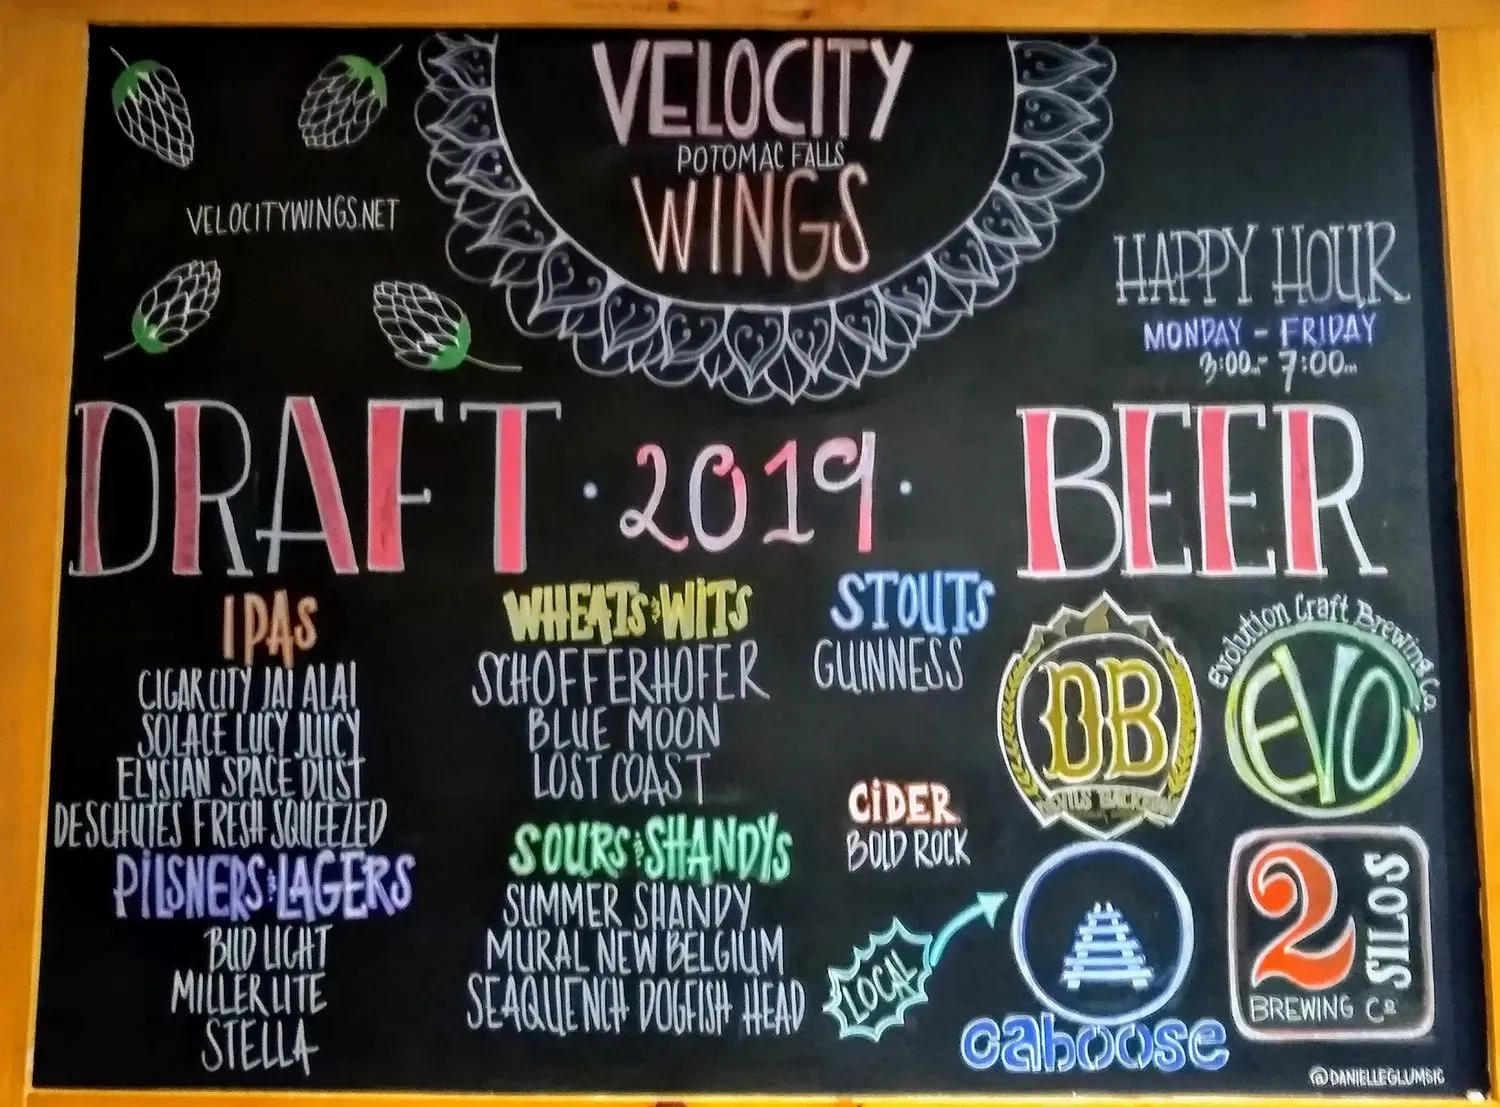 VELOCITY
POTOMAC FALLS
WINGS
VELOCITYWINGS.NET
HAPPY HOUR
MONDAY - FRIDAY
3:00 - 7:00
DRAFT • 2019 • BEER
IPAS
CIGAR CITY JAI ALAI
SOLACE LUCY JUICY
ELYSIAN SPACE DUST
DESCHUTES FRESH SQUEEZED
PILSNERS & LAGERS
BUD LIGHT
MILLER LITE
STELLA
WHEATS & WITS
SCHOFFERHOFER
BLUE MOON
LOST COAST
SOURS & SHANDYS
SUMMER SHANDY
MURAL NEW BELGIUM
SEAQUENCH DOGFISH HEAD
STOUTS
GUINNESS
CIDER
BOLD ROCK
LOCAL
DB
Evolution Craft Brewing Co
EVO
caboose
2 SILOS
BREWING CO
@DANIELLEGLUMSIC